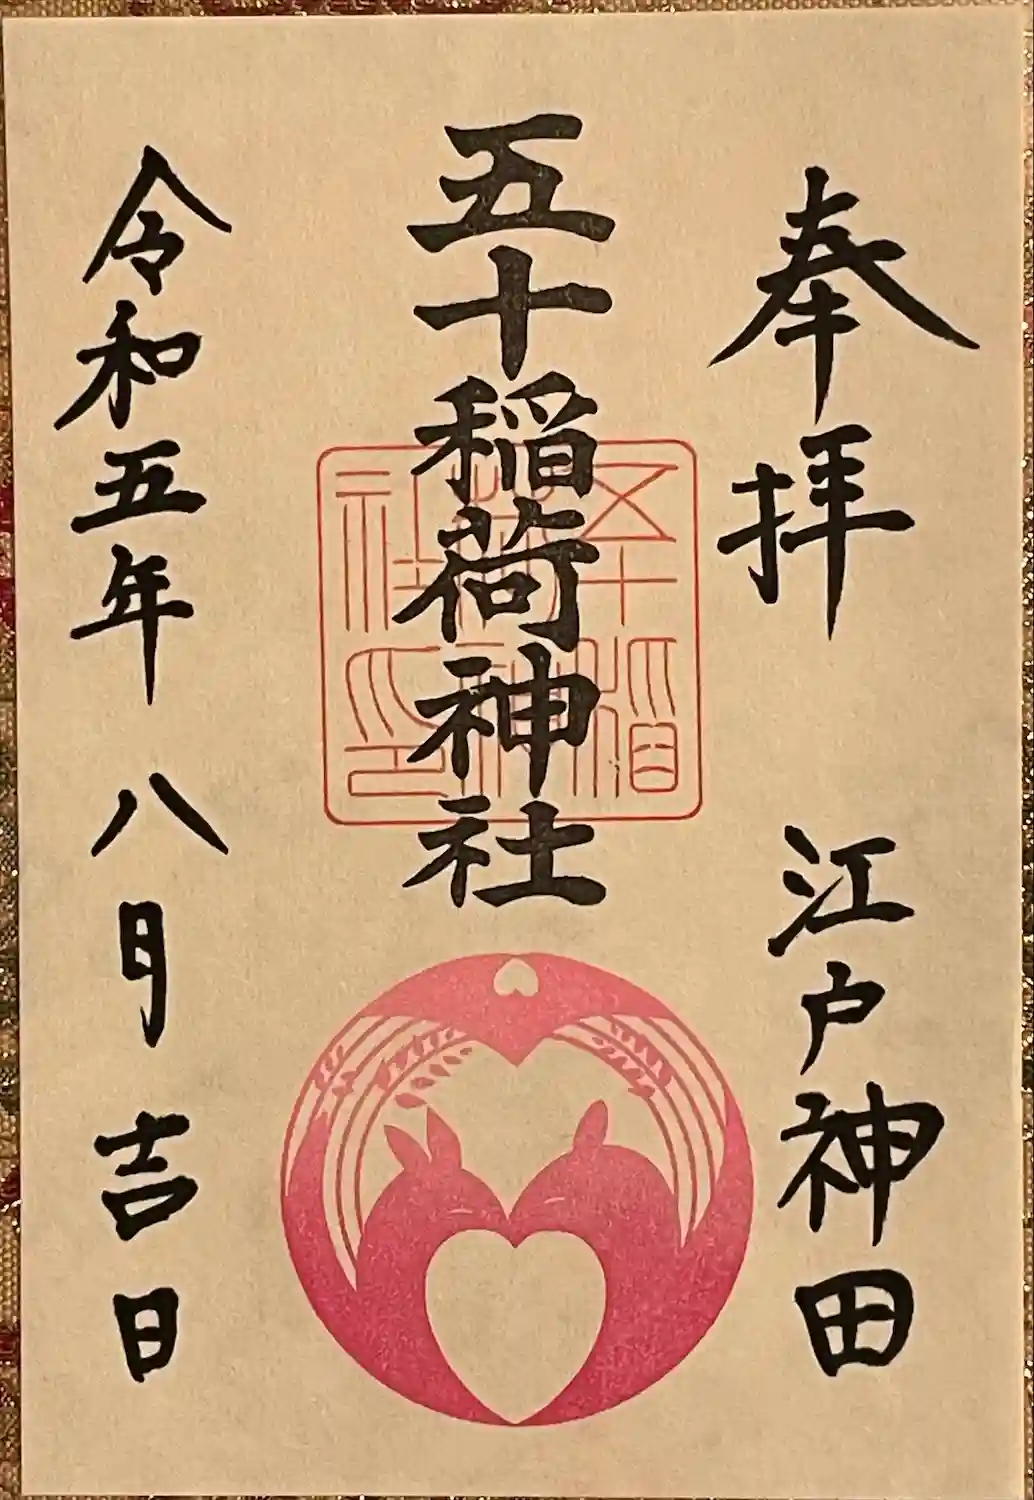 奉拝
江戸神田
五十稲荷神社
五十稲荷神社印
令和五年 八月吉日